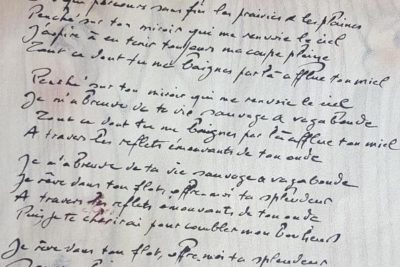 parcours sans fin les prairies & les plaines
Penché sur ton miroir qui me renvoie le ciel
J'aspire à en tenir toujours ma coupe pleine
Tout ce dont tu me baignes par là afflue ton miel
Penché sur ton miroir qui me renvoie le ciel
Je m'abreuve de ta vie sauvage & vagabonde
Tout ce dont tu me baignes par là afflue ton miel
A travers les reflets émouvants de ton onde
Je m'abreuve de ta vie sauvage & vagabonde
Je rêve dans ton flot, offre-moi ta splendeur
A travers les reflets émouvants de ton onde
Puis je te chérirai pour combler mon bonheur
Je rêve dans ton flot, offre-moi ta splendeur